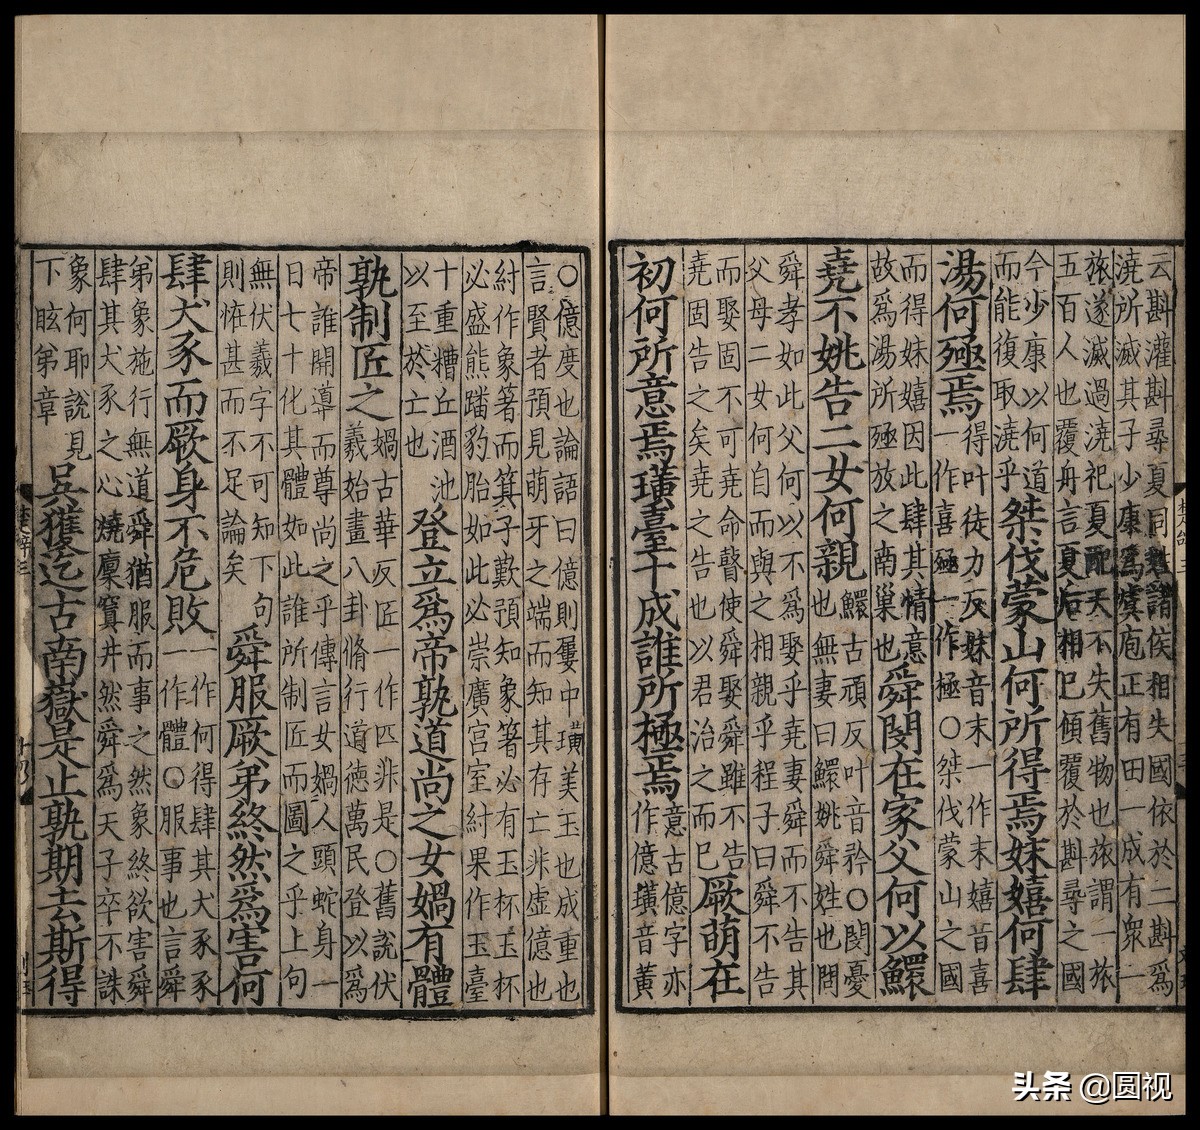 云斟灌斟尋夏同姓諸侯相失國依於二斟爲
澆所滅其子少康爲虞庖正有田一成有衆一
旅遂滅過澆祀夏配天不失舊物也旅謂一旅
五百人也覆舟言夏后相巳傾覆於斟尋之國
今少康以何道
而能復取澆乎
桀伐蒙山何所得焉妺嬉何肆
湯何殛焉
得叶徒力反妺音末一作末嬉音喜
一作喜殛一作極○桀伐蒙山之國
而得妺嬉因此肆其情意
故爲湯所殛放之南巢也
舜閔在家父何以鱞
堯不姚告二女何親
鱞古頑反叶音矜○閔憂
也無妻曰鱞姚舜姓也問
舜孝如此父何以不爲娶乎堯妻舜而不告其
父母二女何自而與之相親乎程子曰舜不告
而娶固不可堯命瞽使舜娶舜雖不告
堯固告之矣堯之告也以君治之而巳
厥萌在
初何所意焉璜臺十成誰所極焉
意古億字亦
作億璜音黃
○億度也論語曰億則屢中璜美玉也成重也
言賢者預見萌牙之端而知其存亡非虛億也
紂作象箸而箕子歎預知象箸必有玉杯玉杯
必盛熊蹯豹胎如此必崇廣宮室紂果作玉臺
十重糟丘酒池
以至於亡也
登立爲帝孰道尚之女媧有體
孰制匠之
媧古華反匠一作匹非是○舊說伏
羲始畫八卦脩行道德萬民登以爲
帝誰開導而尊尚之乎傳言女媧人頭蛇身一
日七十化其體如此誰所制匠而圖之乎上句
無伏羲字不可知下句
則恠甚而不足論矣
舜服厥弟終然爲害何
肆犬豕而厥身不危敗
一作何得肆其犬豕
一作體○服事也言舜
弟象施行無道舜猶服而事之然象終欲害舜
肆其犬豕之心燒廩窴井然舜爲天子卒不誅
象何耶說見
下眩弟章
吳獲迄古南嶽是止孰期去斯得
头条 @圆视